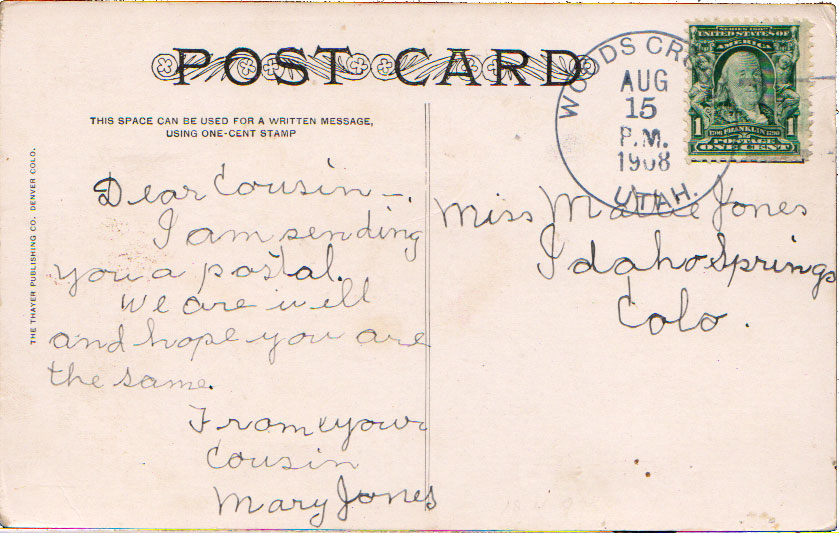 POST CARD
THIS SPACE CAN BE USED FOR A WRITTEN MESSAGE,
USING ONE-CENT STAMP
THE THAYER PUBLISHING CO. DENVER COLO.
Dear Cousin -.
I am sending
you a postal.
We are well
and hope you are
the same.
From your
Cousin
Mary Jones
WOODS CRO
AUG
15
P.M.
1908
UTAH.
UNITED STATES OF
AMERICA
1 FRANKLIN 1
POSTAGE
ONE CENT
Miss Jones
Idaho Springs
Colo.